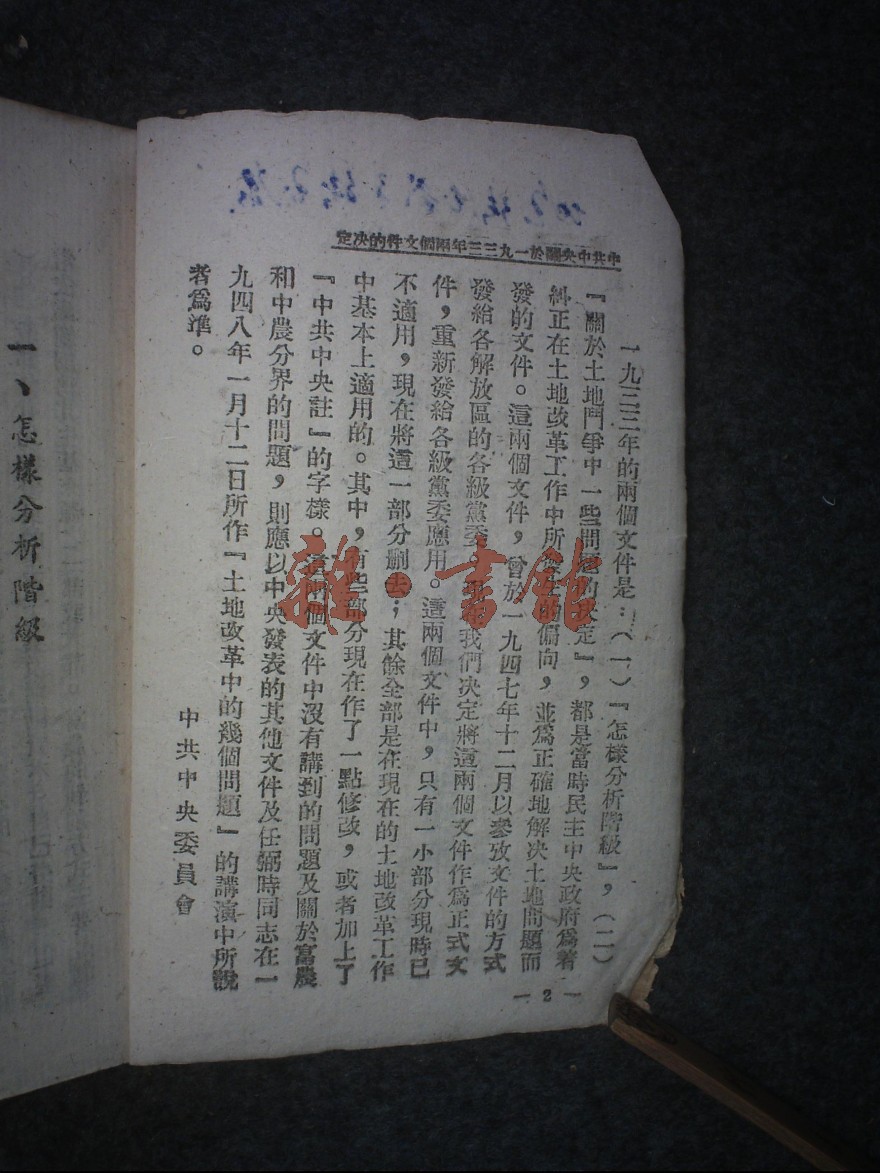 中共中央關於一九三三年兩個文件的决定
一九三三年的兩個文件是：（一）『怎樣分析階級』，（二）
『關於土地鬥爭中一些問題的决定』，都是當時民主中央政府爲著
糾正在土地改革工作中所發生的偏向，並爲正確地解决土地問題而
發的文件。這兩個文件，曾於一九四七年十二月以參攷文件的方式
發給各解放區的各級黨委。現在我們决定將這兩個文件作爲正式文
件，重新發給各級黨委應用。這兩個文件中，只有一小部分現時已
不適用，現在將這一部分删去；其餘全部是在現在的土地改革工作
中基本上適用的。其中，有些部分現在作了一點修改，或者加上了
『中共中央註』的字樣。這兩個文件中沒有講到的問題及關於富農
和中農分界的問題，則應以中央發表的其他文件及任弼時同志在一
九四八年一月十二日所作『土地改革中的幾個問題』的講演中所說
者爲準。
中共中央委員會
— 2 —
一、怎樣分析階級
雜·書館